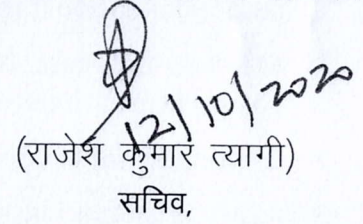 12/10/2020
(राजेश कुमार त्यागी)
सचिव,